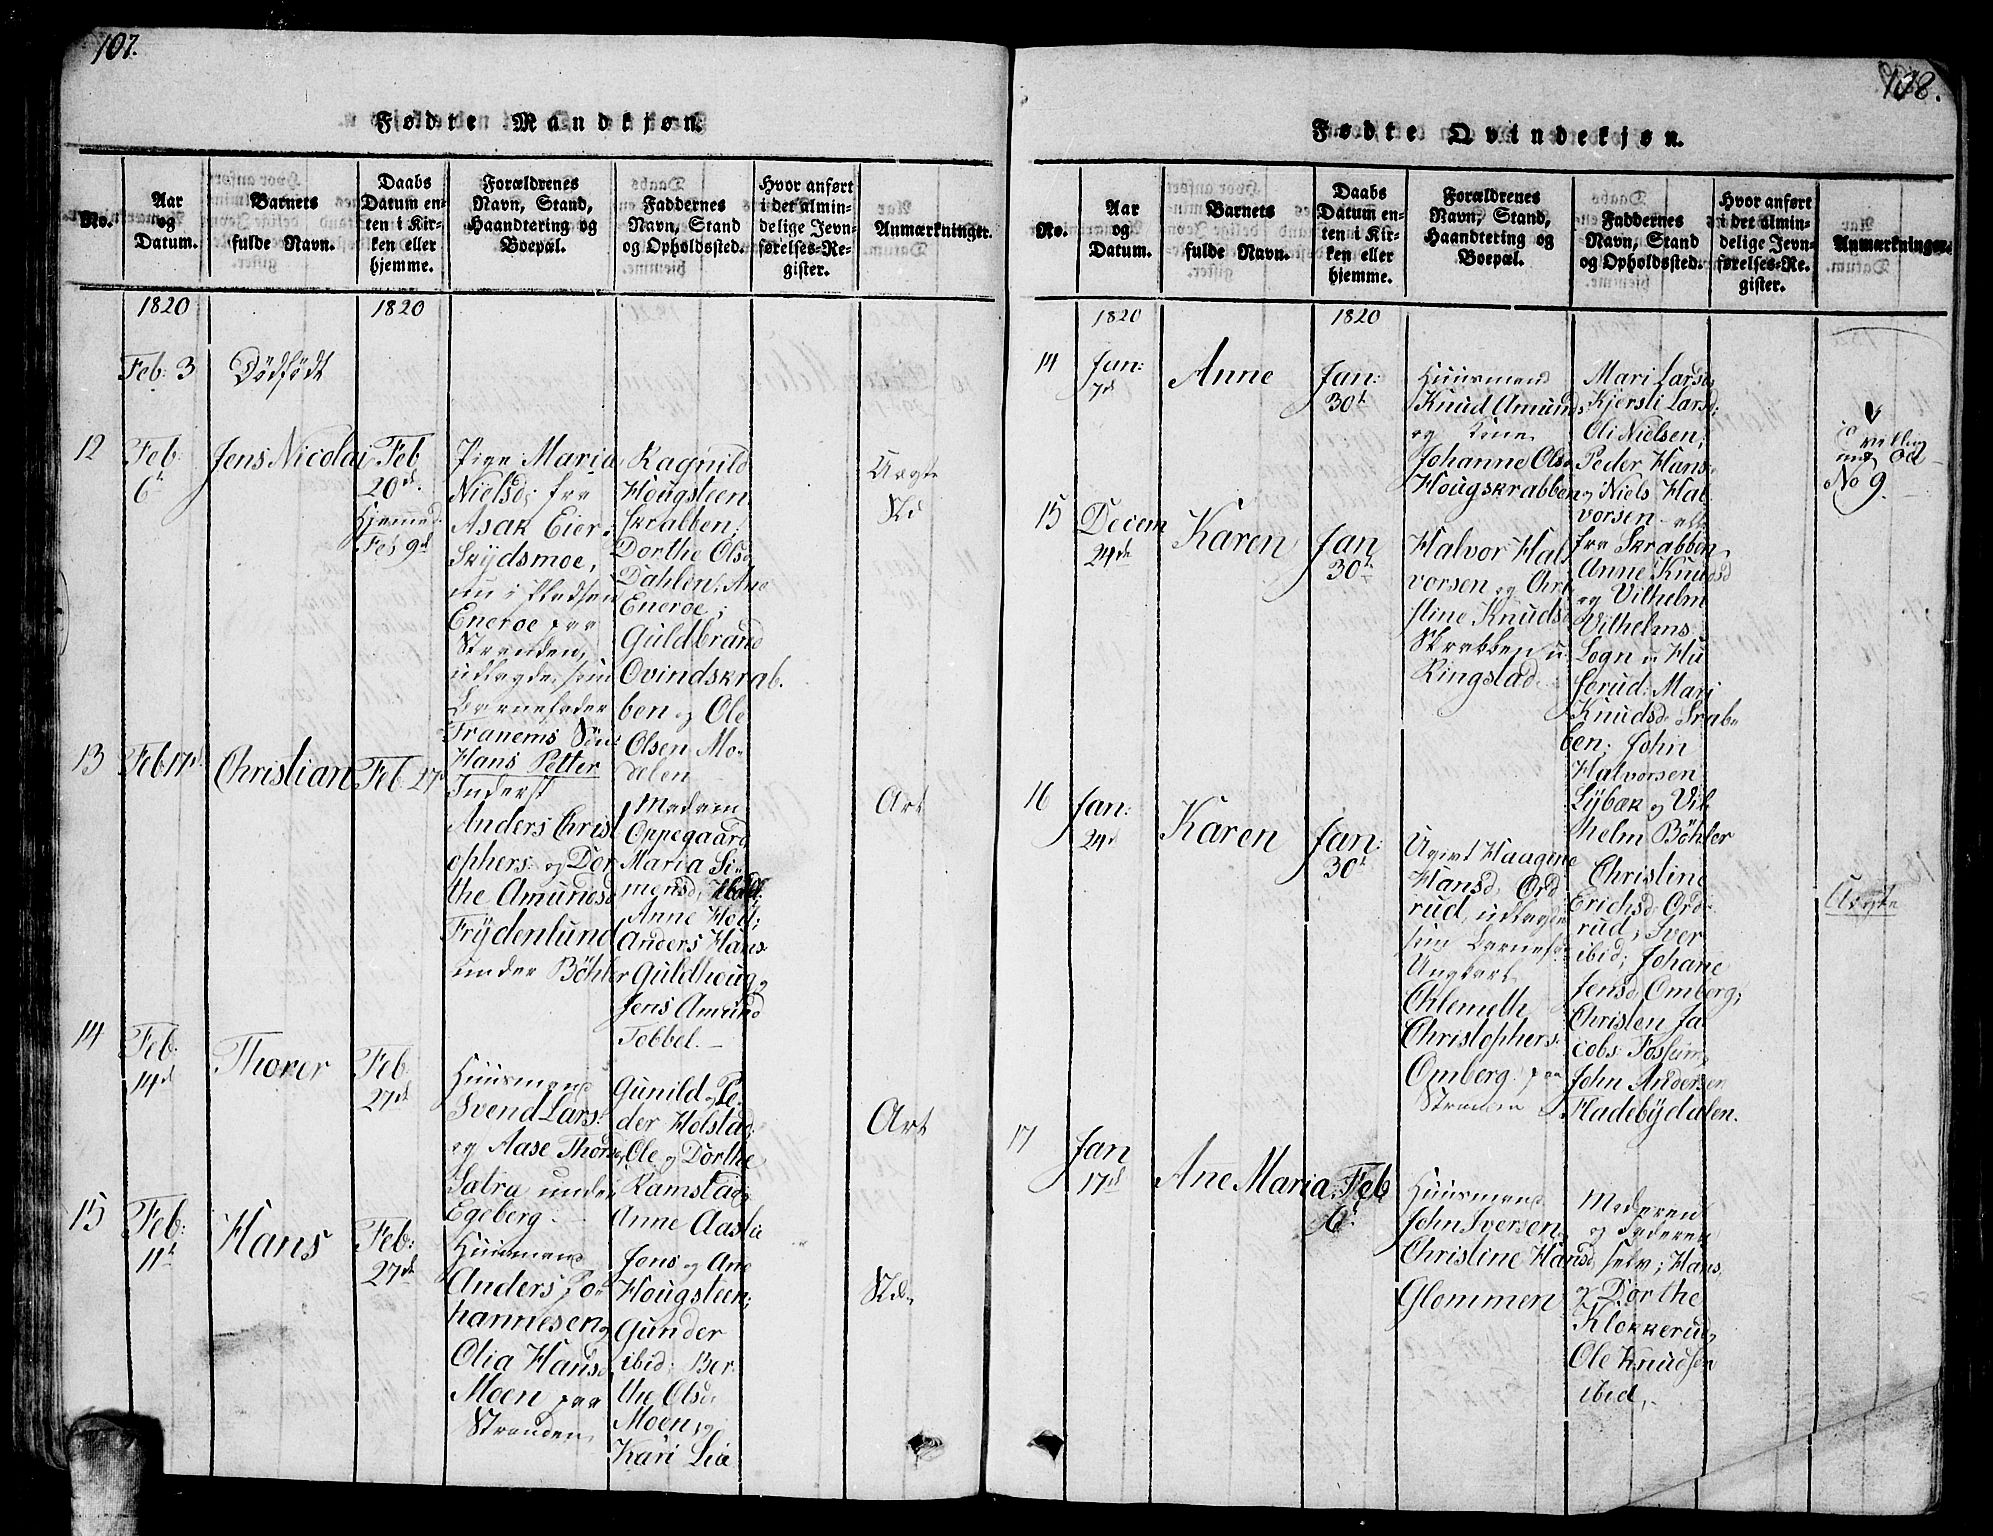 107.
Fødte Mandkjøn.
No.
Aar
og
Datum.
Barnets
fulde Navn.
Daabs
Datum en-
ten i Kir-
ken eller
hjemme.
Forældrenes
Navn, Stand,
Haandtering og
Boepæl.
Faddernes
Navn, Stand
og Opholdssted.
Hvor anført
i det almin-
delige Jevn-
førelses-Re-
gister.
Anmærkninger.
1820
1820
Feb: 3
Dödfödt
12
Feb:
6t
Jens Nicolai
Feb
20d.
Hjemmed:
Feb 9d
Pige Maria
Nielsd: fra
Asak Eier:
Skÿdsmoe,
nu i Pladsen
Eneroe paa
Stranden,
udlagde som
Barnefader
Hans Petter
Ragnild
Hougsteen
Skrabben;
Dorthe Olsd
Dahlen, Ane
Eneroe;
Guldbrand
Ovindskrab.
ben og Ole
Olsen Mo-
delen
Uægte
Sk
13
Feb 17d.
Christian
Feb 27d
Inderst
Anders Christ
ophers: og Dor
the Amundsd
Frÿdenlund
under Böhler
Madam
Oppegaard
Maria Si-
mensd,
Anne Hol:
Anders Hans
Guldhoug og
Jens Amund
Tobbel.
Art
14
Feb:
14d
Thorer
Feb:
27d
Huusmand
Svend Lars:
og Aase Thors
Satra under
Egeberg.
Gunild og Pe-
der Holstad;
Ole og Dorthe
Ramstad;
Anne Aaslie
Art
15
Feb:
11t
Hans
Feb:
27d
Huusmand
Anders Jo-
hannesen og
Olia Hansd
Moen paa
Stranden
Jens og Ane
Hougsteen;
Gunder
ibid: Ber
the Olsd
Moen og
Kari Lie
Sk
108.
Fødte Qvindekjøn.
No.
Aar
og
Datum.
Barnets
fulde Navn.
Daabs
Datum en-
ten i Kir-
ken eller
hjemme.
Forældrenes
Navn, Stand,
Haandtering og
Boepæl.
Faddernes
Navn, Stand
og Opholdssted.
Hvor anført
i det almin-
delige Jevn-
førelses-Re-
gister.
Anmærkninger.
1820
1820
14
Jan:
7d
Anne
Jan:
30t
Huusmand
Knud Amunds
og Kone
Johanne Olsd
Hougskrabben
Mari Larsd,
Kjersti Larsd;
Oli Nielsen,
Peder Hans.
og Niels Hal
vorsen alle
fra Skrabben
No 9.
15
Decem
24de
Karen
Jan
30t
Halvor Hal
vorsen og Chri
stine Knudsd
Skrabben u:
Ringstad
Anne Knudsd
og Vilhelm
Vilhelms
Sogn u: Hu
serud: Mari
Knudsd Skrab
ben; John
Halvorsen
Lÿbæk og Vil
helm Böhler
16
Jan:
24d
Karen
Jan:
30t
Ugivt Haagine
Hansd Ord
rud, udlagde
som Barnefar
Ungkarl
Chlemeth
Christophers:
Omberg paa
Stranden
Christine
Erichsd Ord-
rud; Iver
ibid; Johane
Jensd Omberg;
Christen Ja
cobs: Fossum,
John Andersen
Fladebÿdalen.
Uægte
17
Jan
17d
Ane Maria
Feb
6t
Huusmand
John Iversen
Christine Hansd
Glommen
Moderen
og Faderen
selv; Hans
og Dorthe
Klokkerud,
Ole Knudsen
ibid,